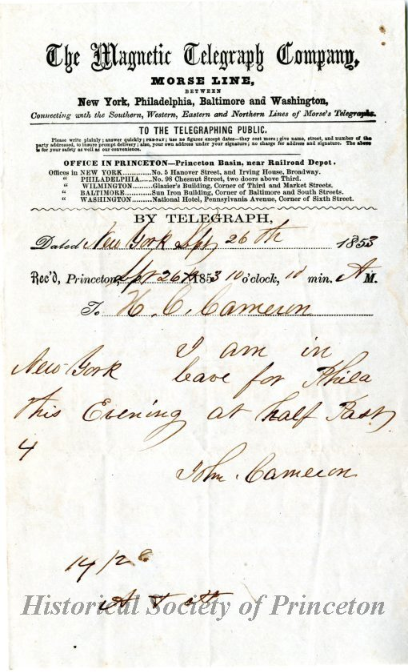 The Magnetic Telegraph Company,
MORSE LINE,
BETWEEN
New York, Philadelphia, Baltimore and Washington,
Connecting with the Southern, Western, Eastern and Northern Lines of Morse's Telegraphs.
TO THE TELEGRAPHING PUBLIC.
Please write plainly; answer quickly; use no figures except dates—they cost more; give name, street, and number of the
party addressed, to insure prompt delivery; also, your own address under your signature; no charge for address and signature. The above
is for your safety as well as our convenience.
OFFICE IN PRINCETON—Princeton Basin, near Railroad Depot.
Offices in NEW YORK............No. 5 Hanover Street, and Irving House, Broadway.
" PHILADELPHIA....No. 98 Chesnut Street, two doors above Third.
" WILMINGTON.......Glazier's Building, Corner of Third and Market Streets.
" BALTIMORE.........Sun Iron Building, Corner of Baltimore and South Streets.
" WASHINGTON......National Hotel, Pennsylvania Avenue, Corner of Sixth Street.
BY TELEGRAPH,
Dated New York Sept 26th 1853
Rec'd, Princeton, Sept 26th 1853 10 o'clock, 10 min. A M.
To H. C. Cameron
I am in
New York leave for Phila
this Evening at half Past
4
John Cameron
14/28
Historical Society of Princeton